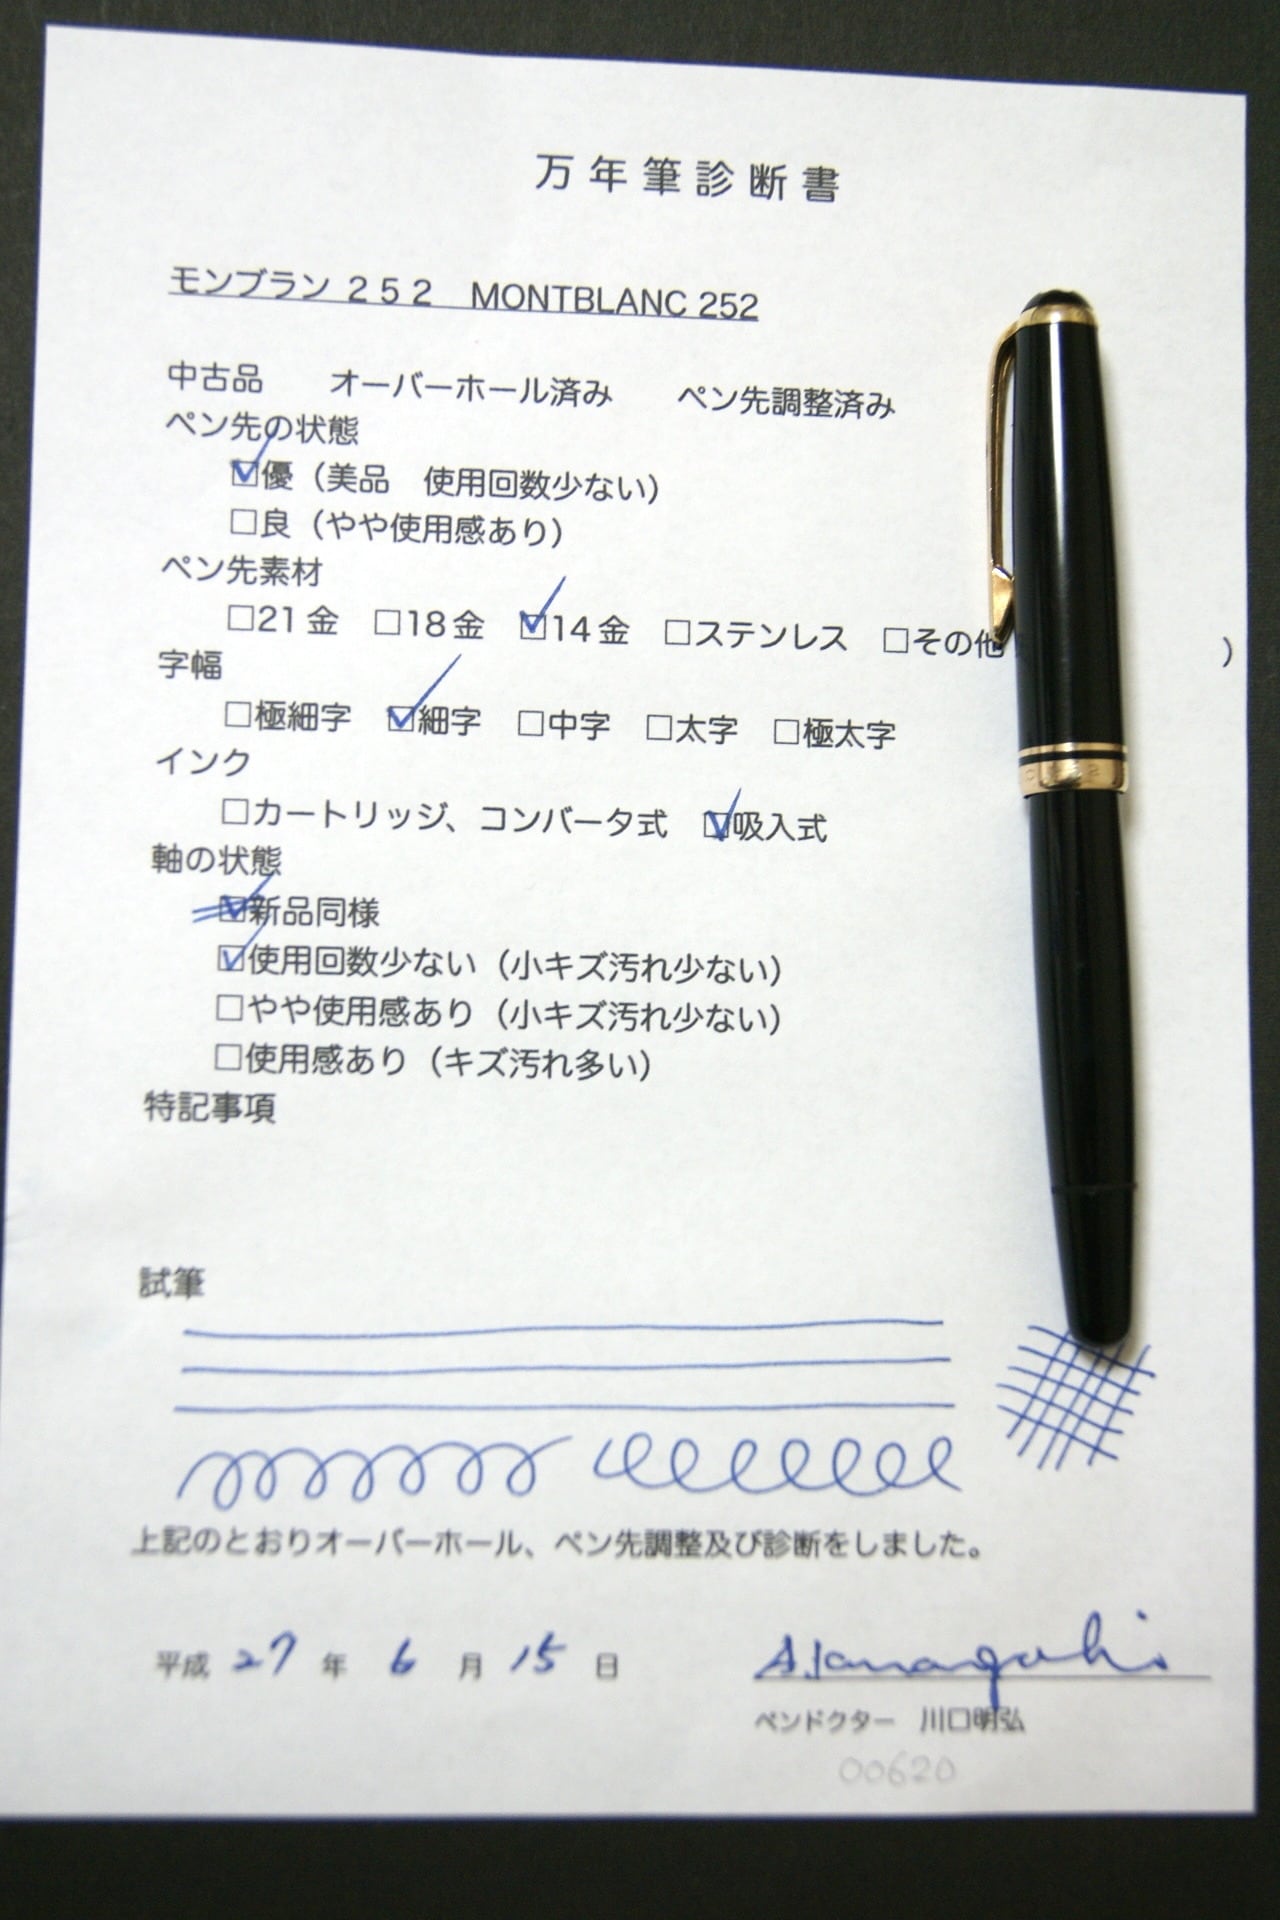 万年筆診断書
モンブラン ２５２　MONTBLANC 252
中古品　　オーバーホール済み　　ペン先調整済み
ペン先の状態
☑優（美品　使用回数少ない）
□良（やや使用感あり）
ペン先素材
□21金　□18金　☑14金　□ステンレス　□その他　）
字幅
□極細字　☑細字　□中字　□太字　□極太字
インク
□カートリッジ、コンバータ式　☑吸入式
軸の状態
☑新品同様
☑使用回数少ない（小キズ汚れ少ない）
□やや使用感あり（小キズ汚れ少ない）
□使用感あり（キズ汚れ多い）
特記事項
試筆
上記のとおりオーバーホール、ペン先調整及び診断をしました。
平成 27 年 6 月 15 日
ペンドクター　川口明弘
00620